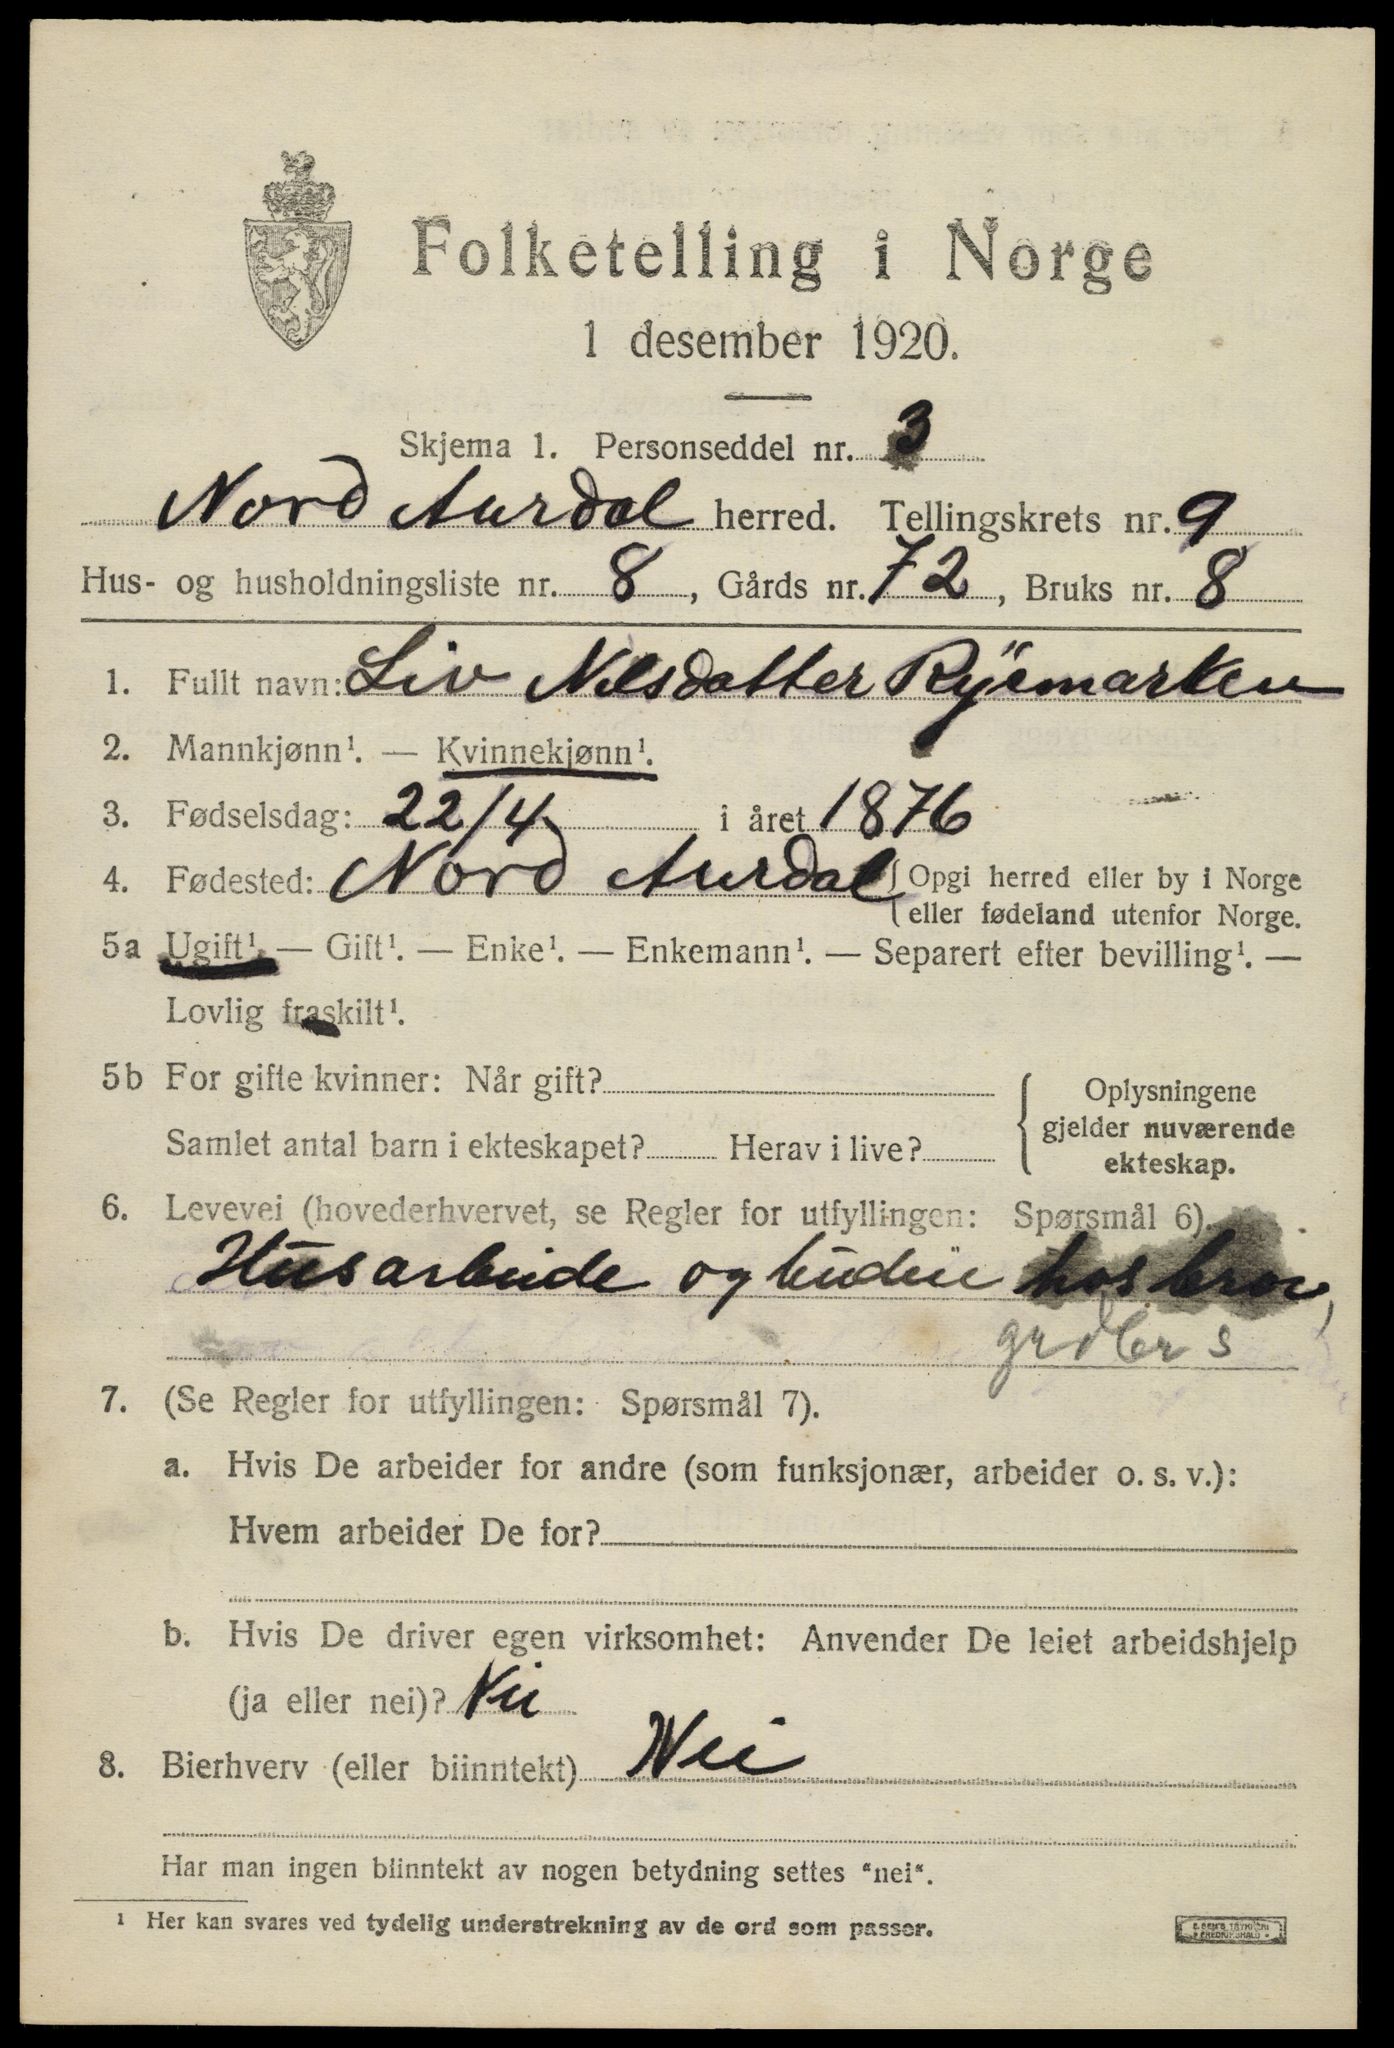 Folketelling i Norge
1 desember 1920.
Skjema 1. Personseddel nr. 3
Nord Aurdal herred. Tellingskrets nr. 9
Hus- og husholdningsliste nr. 8, Gårds nr. 72, Bruks nr. 8
1. Fullt navn: Liv Nilsdatter Ryemarken
2. Mannkjønn¹. — Kvinnekjønn¹.
3. Fødselsdag: 22/4 i året 1876
4. Fødested: Nord Aurdal { Opgi herred eller by i Norge
eller fødeland utenfor Norge.
5a Ugift¹. — Gift¹. — Enke¹. — Enkemann¹. — Separert efter bevilling¹. —
Lovlig fraskilt¹.
5b For gifte kvinner: Når gift?
Samlet antal barn i ekteskapet? Herav i live?
{ Oplysningene
gjelder nuværende
ekteskap.
6. Levevei (hovederhvervet, se Regler for utfyllingen: Spørsmål 6).
Husarbeide og budeie hos bror,
grdbrs
7. (Se Regler for utfyllingen: Spørsmål 7).
a. Hvis De arbeider for andre (som funksjonær, arbeider o. s. v.):
Hvem arbeider De for?
b. Hvis De driver egen virksomhet: Anvender De leiet arbeidshjelp
(ja eller nei)? Nei
8. Bierhverv (eller biinntekt) Nei
Har man ingen biinntekt av nogen betydning settes "nei".
¹ Her kan svares ved tydelig understrekning av de ord som passer.